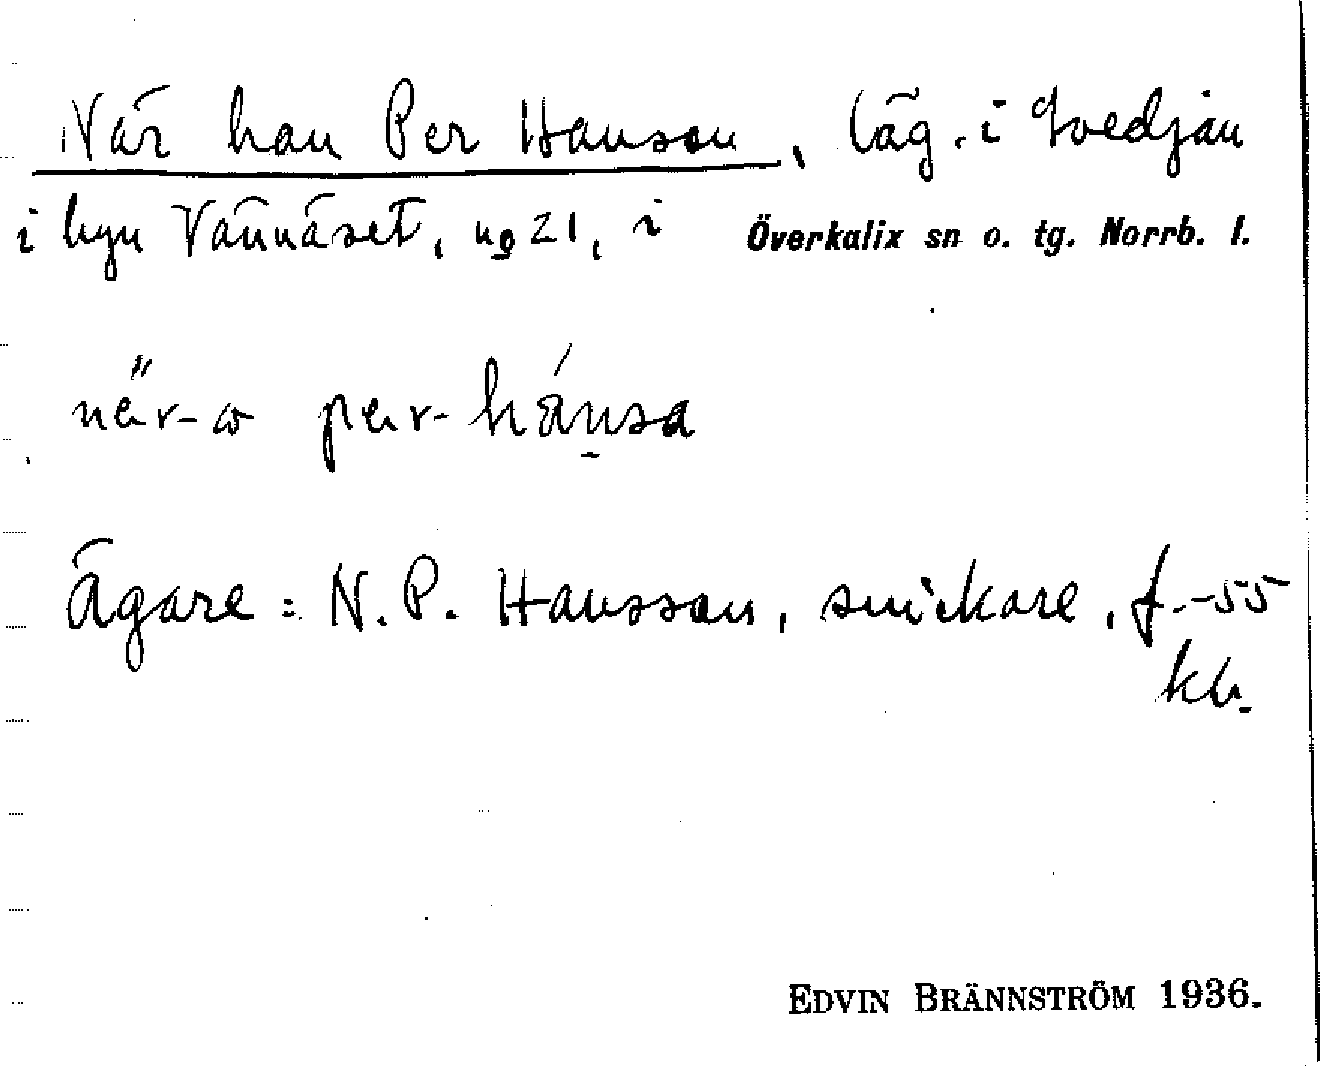 När han Per Hanson, läg. i Svedjan
i byn Vännäset, no 21, i Överkalix sn o. tg. Norrb. l.
när-o per-hánsa
Ägare: N. P. Hansson, snickare, f.-55
kh.
EDVIN BRÄNNSTRÖM 1936.